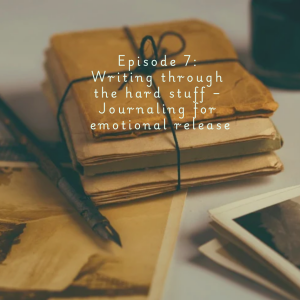 Episode 7:
Writing through
the hard stuff –
Journaling for
emotional release